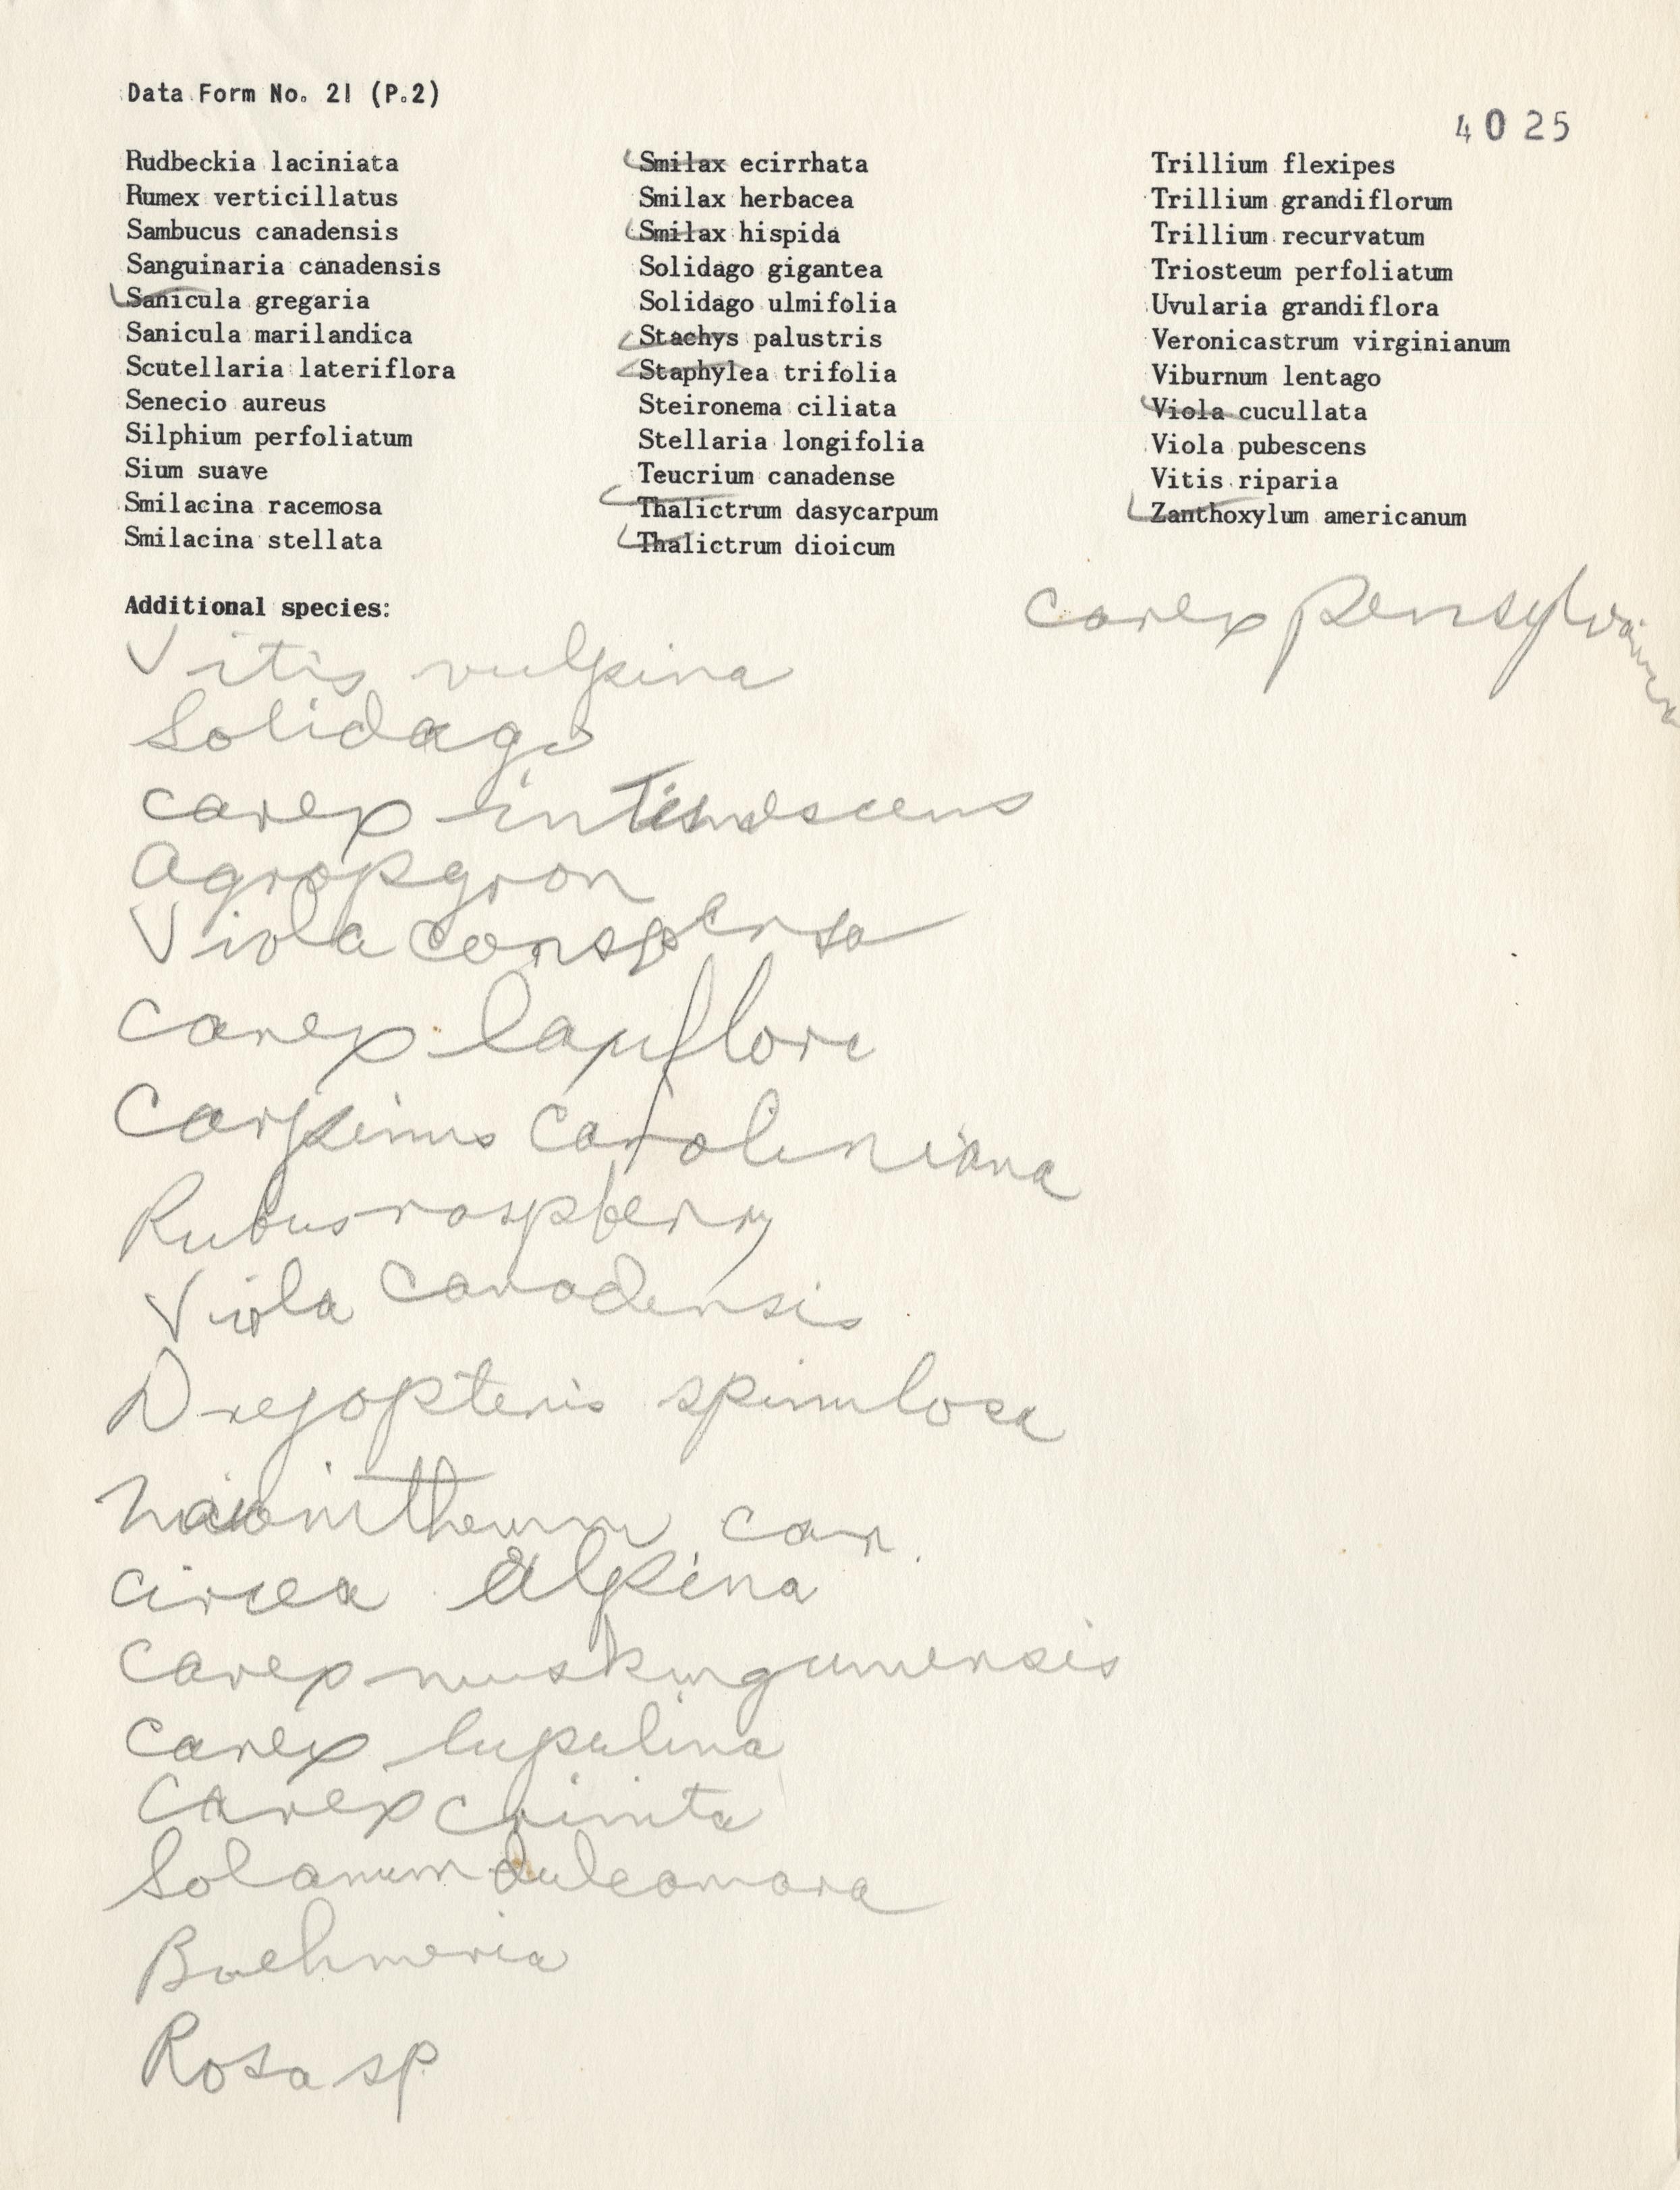 Data Form No. 21 (P.2)
4025
Rudbeckia laciniata
Rumex verticillatus
Sambucus canadensis
Sanguinaria canadensis
Sanicula gregaria
Sanicula marilandica
Scutellaria lateriflora
Senecio aureus
Silphium perfoliatum
Sium suave
Smilacina racemosa
Smilacina stellata
Smilax ecirrhata
Smilax herbacea
Smilax hispida
Solidago gigantea
Solidago ulmifolia
Stachys palustris
Staphylea trifolia
Steironema ciliata
Stellaria longifolia
Teucrium canadense
Thalictrum dasycarpum
Thalictrum dioicum
Trillium flexipes
Trillium grandiflorum
Trillium recurvatum
Triosteum perfoliatum
Uvularia grandiflora
Veronicastrum virginianum
Viburnum lentago
Viola cucullata
Viola pubescens
Vitis riparia
Zanthoxylum americanum
Additional species:
carex pensylvanica
Vitis vulpina
Solidago
carex intumescens
Agropyron
Viola conspersa
carex laxiflora
Carpinus caroliniana
Rubus raspberry
Viola canadensis
Dryopteris spinulosa
can.
circea alpina
Carex muskingumensis
carex lupulina
Carex crinita
Solanum dulcamara
Boehmeria
Rosa sp.